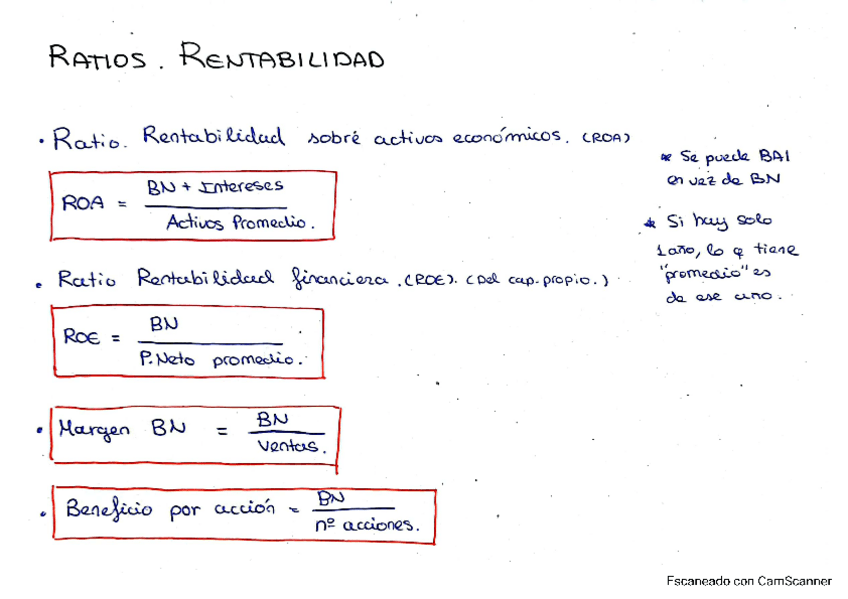 RATIOS. RENTABILIDAD
• Ratio. Rentabilidad sobre activos económicos. (ROA)
ROA = BN + Intereses
Activos Promedio.
* Se puede BAI
en vez de BN
* Si hay solo
1 año, lo q tiene
"promedio" es
de ese uno.
• Ratio Rentabilidad financiera. (ROE). (Del cap. propio.)
ROE = BN
P. Neto promedio.
• Margen BN = BN
Ventas.
• Beneficio por acción = BN
nº acciones.
Escaneado con CamScanner